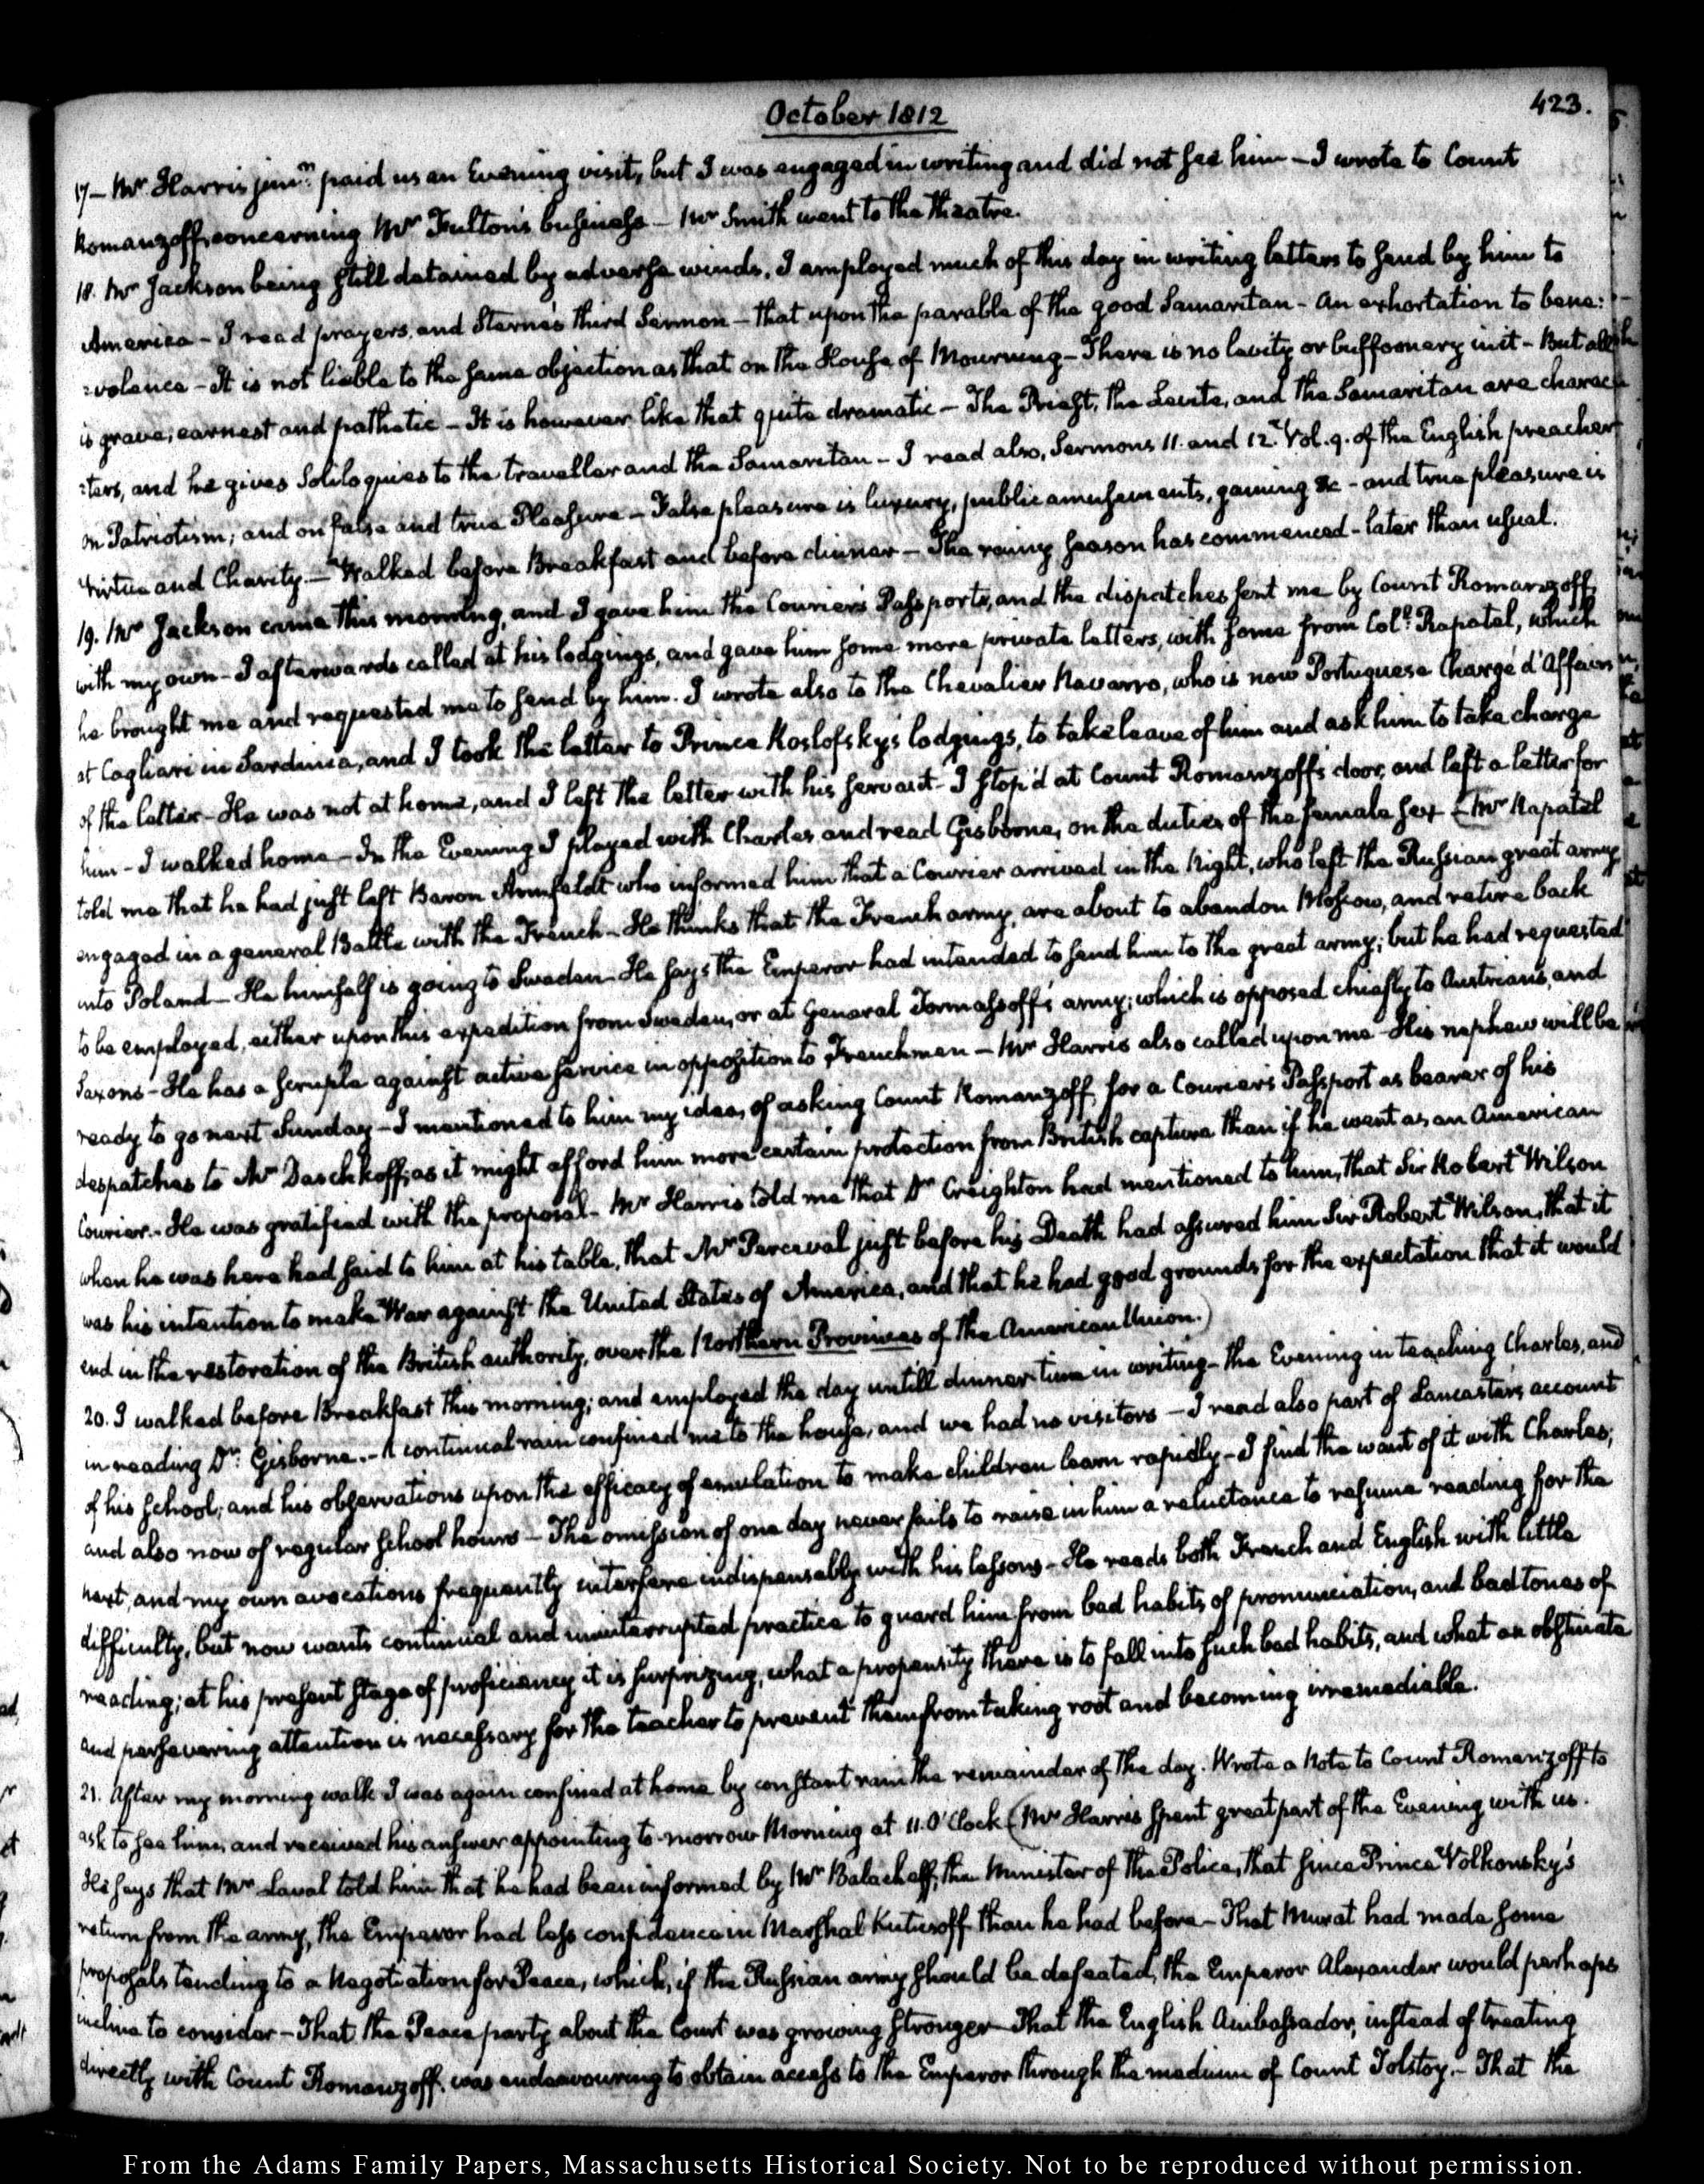 October 1812
423.
17 – Mr Harris junr. paid us an Evening visit, but I was engaged in writing and did not see him – I wrote to Count
Romanzoff, concerning Mr Fulton's business – Mr Smith went to the theatre.
18. Mr Jackson being still detained by adverse winds, I employed much of this day in writing letters to send by him to
America – I read prayers, and Sterne's third Sermon – that upon the parable of the good Samaritan – An exhortation to bene:
:volence – It is not liable to the same objection as that on the House of Mourning – There is no levity or buffoonery in it – But all
is grave, earnest and pathetic – It is however like that quite dramatic – The Priest, the Levite, and the Samaritan are charac:
:ters, and he gives Soliloquies to the traveller and the Samaritan – I read also, Sermons 11. and 12. Vol. 9. of the English preacher
on Patriotism; and on false and true Pleasure – False pleasure is luxury, public amusements, gaming &c – and true pleasure is
Virtue and Charity. – Walked before Breakfast and before dinner – The rainy season has commenced – later than usual.
19. Mr Jackson came this morning, and I gave him the Courier's Passports, and the dispatches sent me by Count Romanzoff,
with my own – I afterwards called at his lodgings, and gave him some more private letters, with some from Coll. Rapatel, which
he brought me and requested me to send by him. I wrote also to the Chevalier Navarro, who is now Portuguese Chargé d'Affaires
at Cagliari in Sardinia, and I took the letter to Prince Koslofsky's lodgings, to take leave of him and ask him to take charge
of the letter – He was not at home, and I left the letter with his servant – I stop'd at Count Romanzoff's door, and left a letter for
him – I walked home – In the Evening I played with Charles and read Gisborne, on the duties of the female sex – (Mr Rapatel
told me that he had just left Baron Armfeldt who informed him that a Courier arrived in the Night, who left the Russian great army
engaged in a general Battle with the French – He thinks that the French army, are about to abandon Moscow, and retire back
into Poland – He himself is going to Sweden – He says the Emperor had intended to send him to the great army; but he had requested
to be employed, either upon this expedition from Sweden, or at General Tormassoff's army; which is opposed chiefly to Austrians, and
Saxons – He has a scruple against active service in opposition to Frenchmen – Mr Harris also called upon me – His nephew will be
ready to go next Sunday – I mentioned to him my idea, of asking Count Romanzoff, for a Courier's Passport as bearer of his
despatches to Mr Daschkoff, as it might afford him more certain protection from British capture than if he went as an American
Courier. – He was gratified with the proposal – Mr Harris told me that Dr Creighton had mentioned to him, that Sir Robert Wilson
when he was here had said to him at his table, that Mr Perceval just before his Death had assured him Sir Robert Wilson, that it
was his intention to make War against the United States of America, and that he had good grounds for the expectation that it would
end in the restoration of the British authority, over the Northern Provinces of the American Union.)
20. I walked before Breakfast this morning; and employed the day untill dinner time in writing – the Evening in teaching Charles, and
in reading Dr. Gisborne. – A continual rain confined me to the house, and we had no visitors – I read also part of Lancaster's account
of his school; and his observations upon the efficacy of emulation to make children learn rapidly – I find the want of it with Charles;
and also now of regular school hours – The omission of one day never fails to raise in him a reluctance to resume reading for the
next, and my own avocations frequently interfere indispensably with his lessons – He reads both French and English with little
difficulty, but now wants continual and uninterrupted practice to guard him from bad habits of pronunciation, and bad tones of
reading; at his present stage of proficiency it is surprizing, what a propensity there is to fall into such bad habits, and what an obstinate
and persevering attention is necessary for the teacher to prevent them from taking root and becoming irremediable.
21. After my morning walk I was again confined at home by constant rain the remainder of the day. Wrote a Note to Count Romanzoff to
ask to see him, and received his answer appointing to-morrow Morning at 11. O'Clock (Mr Harris spent great part of the Evening with us.
He says that Mr Laval told him that he had been informed by Mr Balacheff, the Minister of the Police, that since Prince Volkonsky's
return from the army, the Emperor had less confidence in Marshal Kutusoff than he had before – That Murat had made some
proposals tending to a Negotiation for Peace, which, if the Russian army should be defeated, the Emperor Alexander would perhaps
incline to consider – That the Peace party about the Court was growing stronger – That the English Ambassador, instead of treating
directly with Count Romanzoff, was endeavouring to obtain access to the Emperor through the medium of Count Tolstoy. – That the
From the Adams Family Papers, Massachusetts Historical Society. Not to be reproduced without permission.